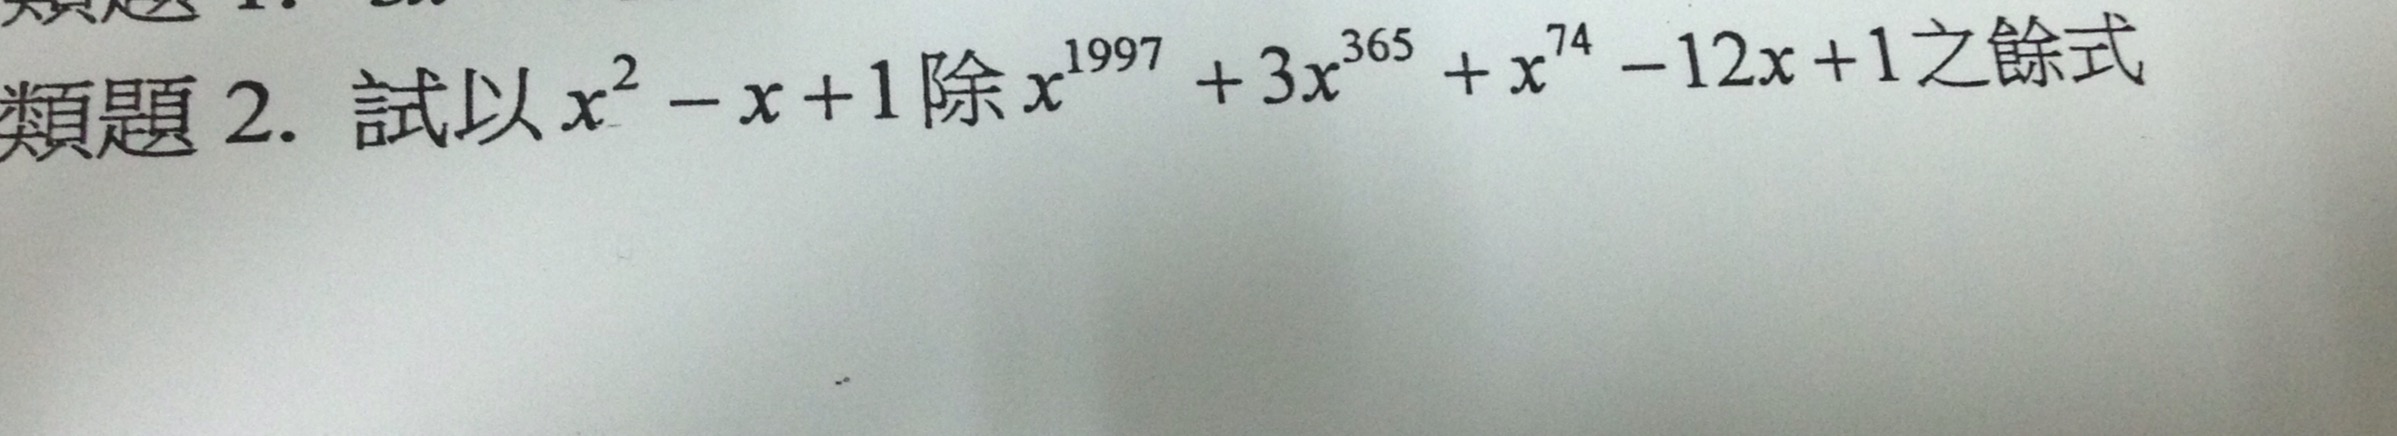 類題 2. 試以 x² − x + 1 除 x¹⁹⁹⁷ + 3x³⁶⁵ + x⁷⁴ − 12x + 1 之餘式